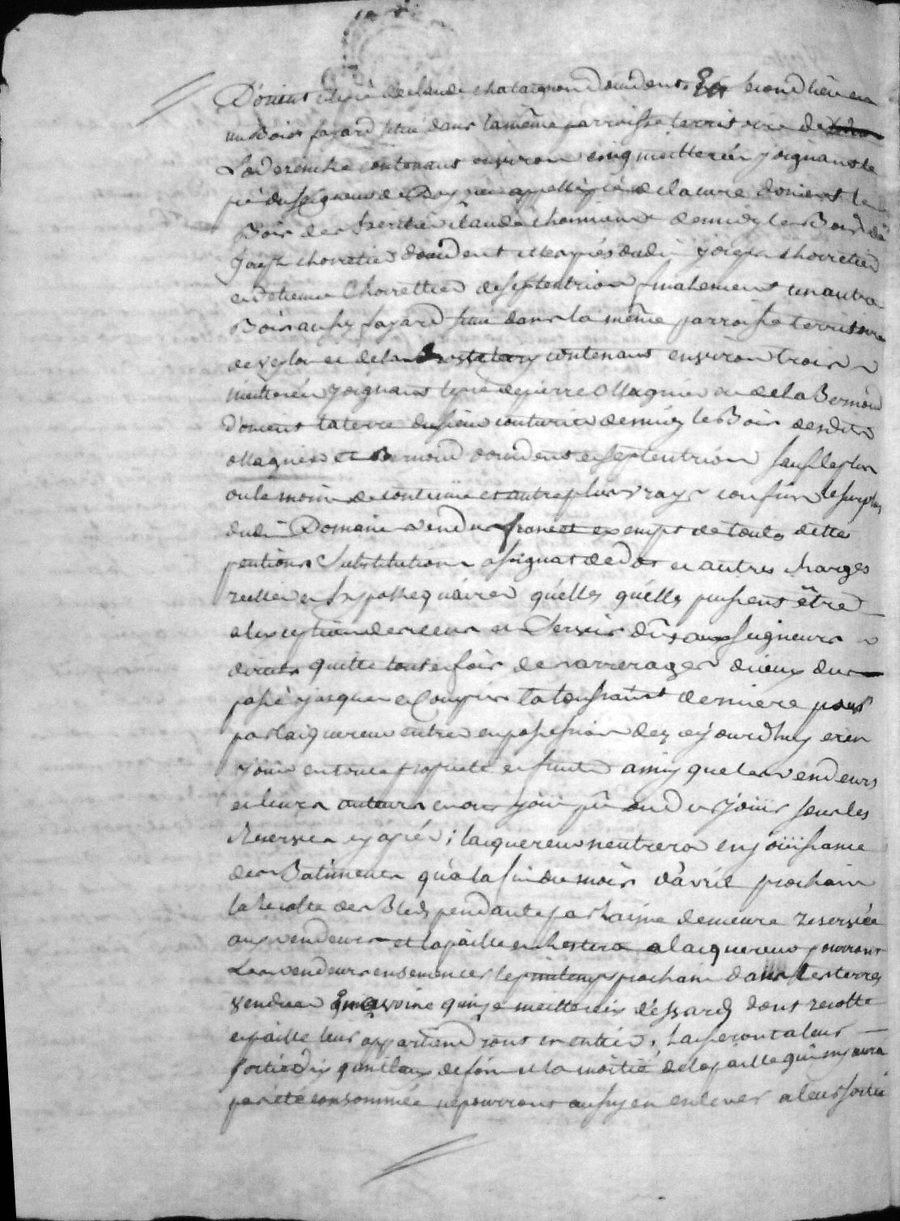 D'orient le pré de Claude chataignon d'occident. Et second lieu en
un Bois fayard situé dans la même parroisse territoire de
contenant environ cinq meitterées joignant le
pré du seigneur de appellé pré de la cure d'orient le
Bois de Claude chomienne de midy le Bois de
Joseph chorretier d'occident et le pré dudit joseph chorretier
et d'etienne Chorrettier de septentrion finalement un autre
Bois aussy fayard situé dans la même parroisse territoire
de et de la contenant environ trois
meitterées joignant le pré de pierre Ollagnier ou de la Bernoud
d'orient la terre du sieur couturier de midy le Bois desdits
ollagnier et Bernoud d'occident et septentrion sauf le plus
ou le moins de contenue et autre plus vrays confins le surplus
dudit Domaine vendu franc et exempt de toute dette
pentions Substitution assignat de dot et autres charges
reelles et hypothequaires qu'elles qu'elles puissent être
a l'exception des cens et Servis dûs aux seigneurs
directs quitte toutefois des arrerages d'iceux du
passé jusques et Compris la toussaint derniere pour
par l'aquereur entrer en possession dez ce jourd'huy et en
jouir en toute proprieté et fruits ainsy que les vendeurs
et leurs auteurs en ont joüi pû ou du joüir sous les
Reserves cy après ; l'aquereur n'entrera en joüissance
des Batiments qu'a la fin du mois d'avril prochain
la recolte des Bleds pendante par racine demeure reservée
aux vendeurs et la paille en restera a l'acquereur pourront
Les vendeurs ensemencer le printemps prochain dans les terres
vendues En avoine quinze meitterées d'essard dont recolte
et paille leur appartiendront en entier, laisseront a leur
sortie dix quintaux de foin et la moitié de la paille qui n'aura
pas été consommée ne pourront aussy en enlever a leur sortie